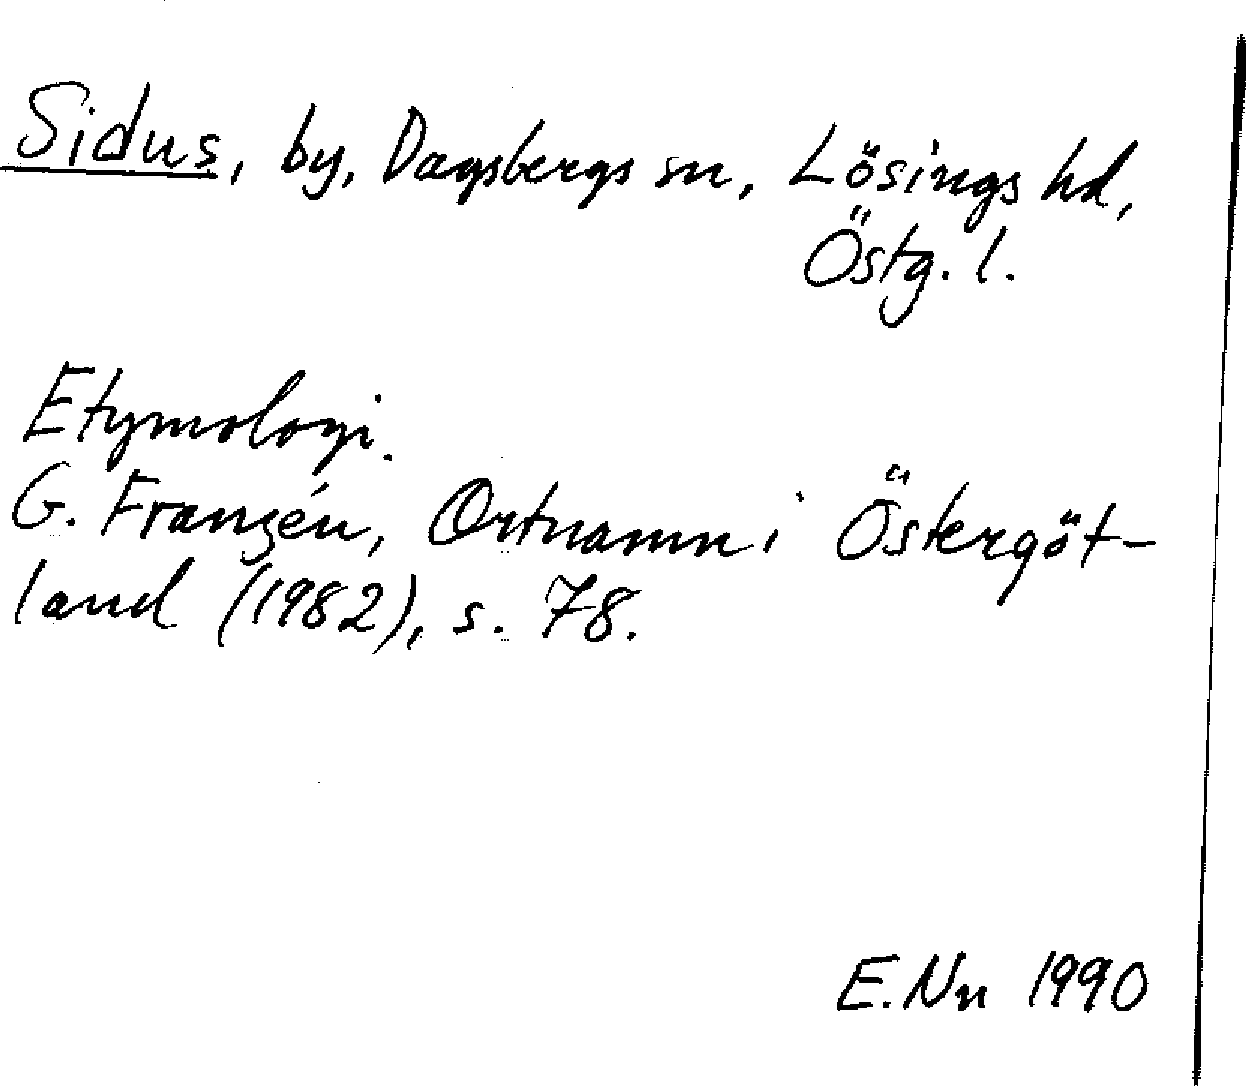 Sidus, by, Dagsbergs sn, Lösings hd,
Östg. l.
Etymologi.
G. Franzén, Ortnamn i Östergöt-
land (1982), s. 78.
E.Nn 1990